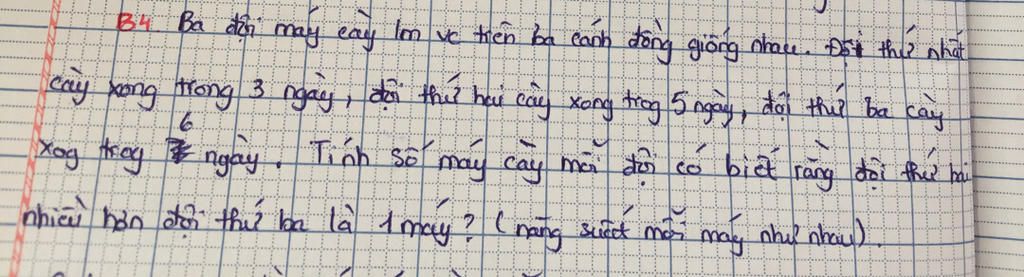 B4. Ba đội máy cày lm vc trên ba cánh đồng giống nhau. Đội thứ nhất
cày xong trong 3 ngày, đội thứ hai cày xong trog 5 ngày, đội thứ ba cày
xog trog 6 ngày. Tính số máy cày mỗi đội có biết rằng đội thứ hai
nhiều hơn đội thứ ba là 1 máy? (năng suất mỗi máy như nhau).